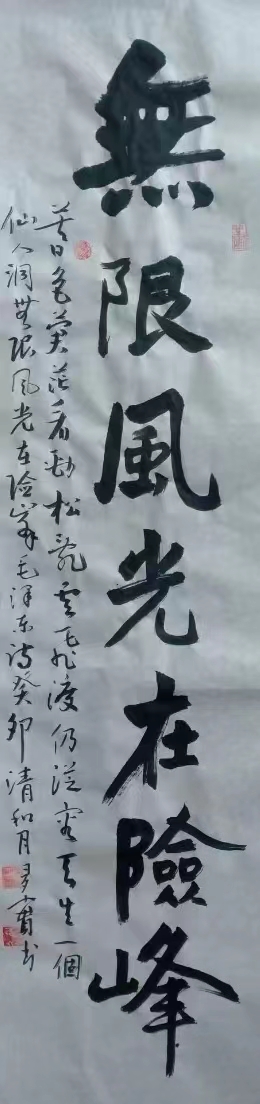 無限風光在險峰
暮色蒼茫看勁松亂雲飛渡仍從容天生一個
仙人洞無限风光在险峯毛泽东诗癸卯清和月书